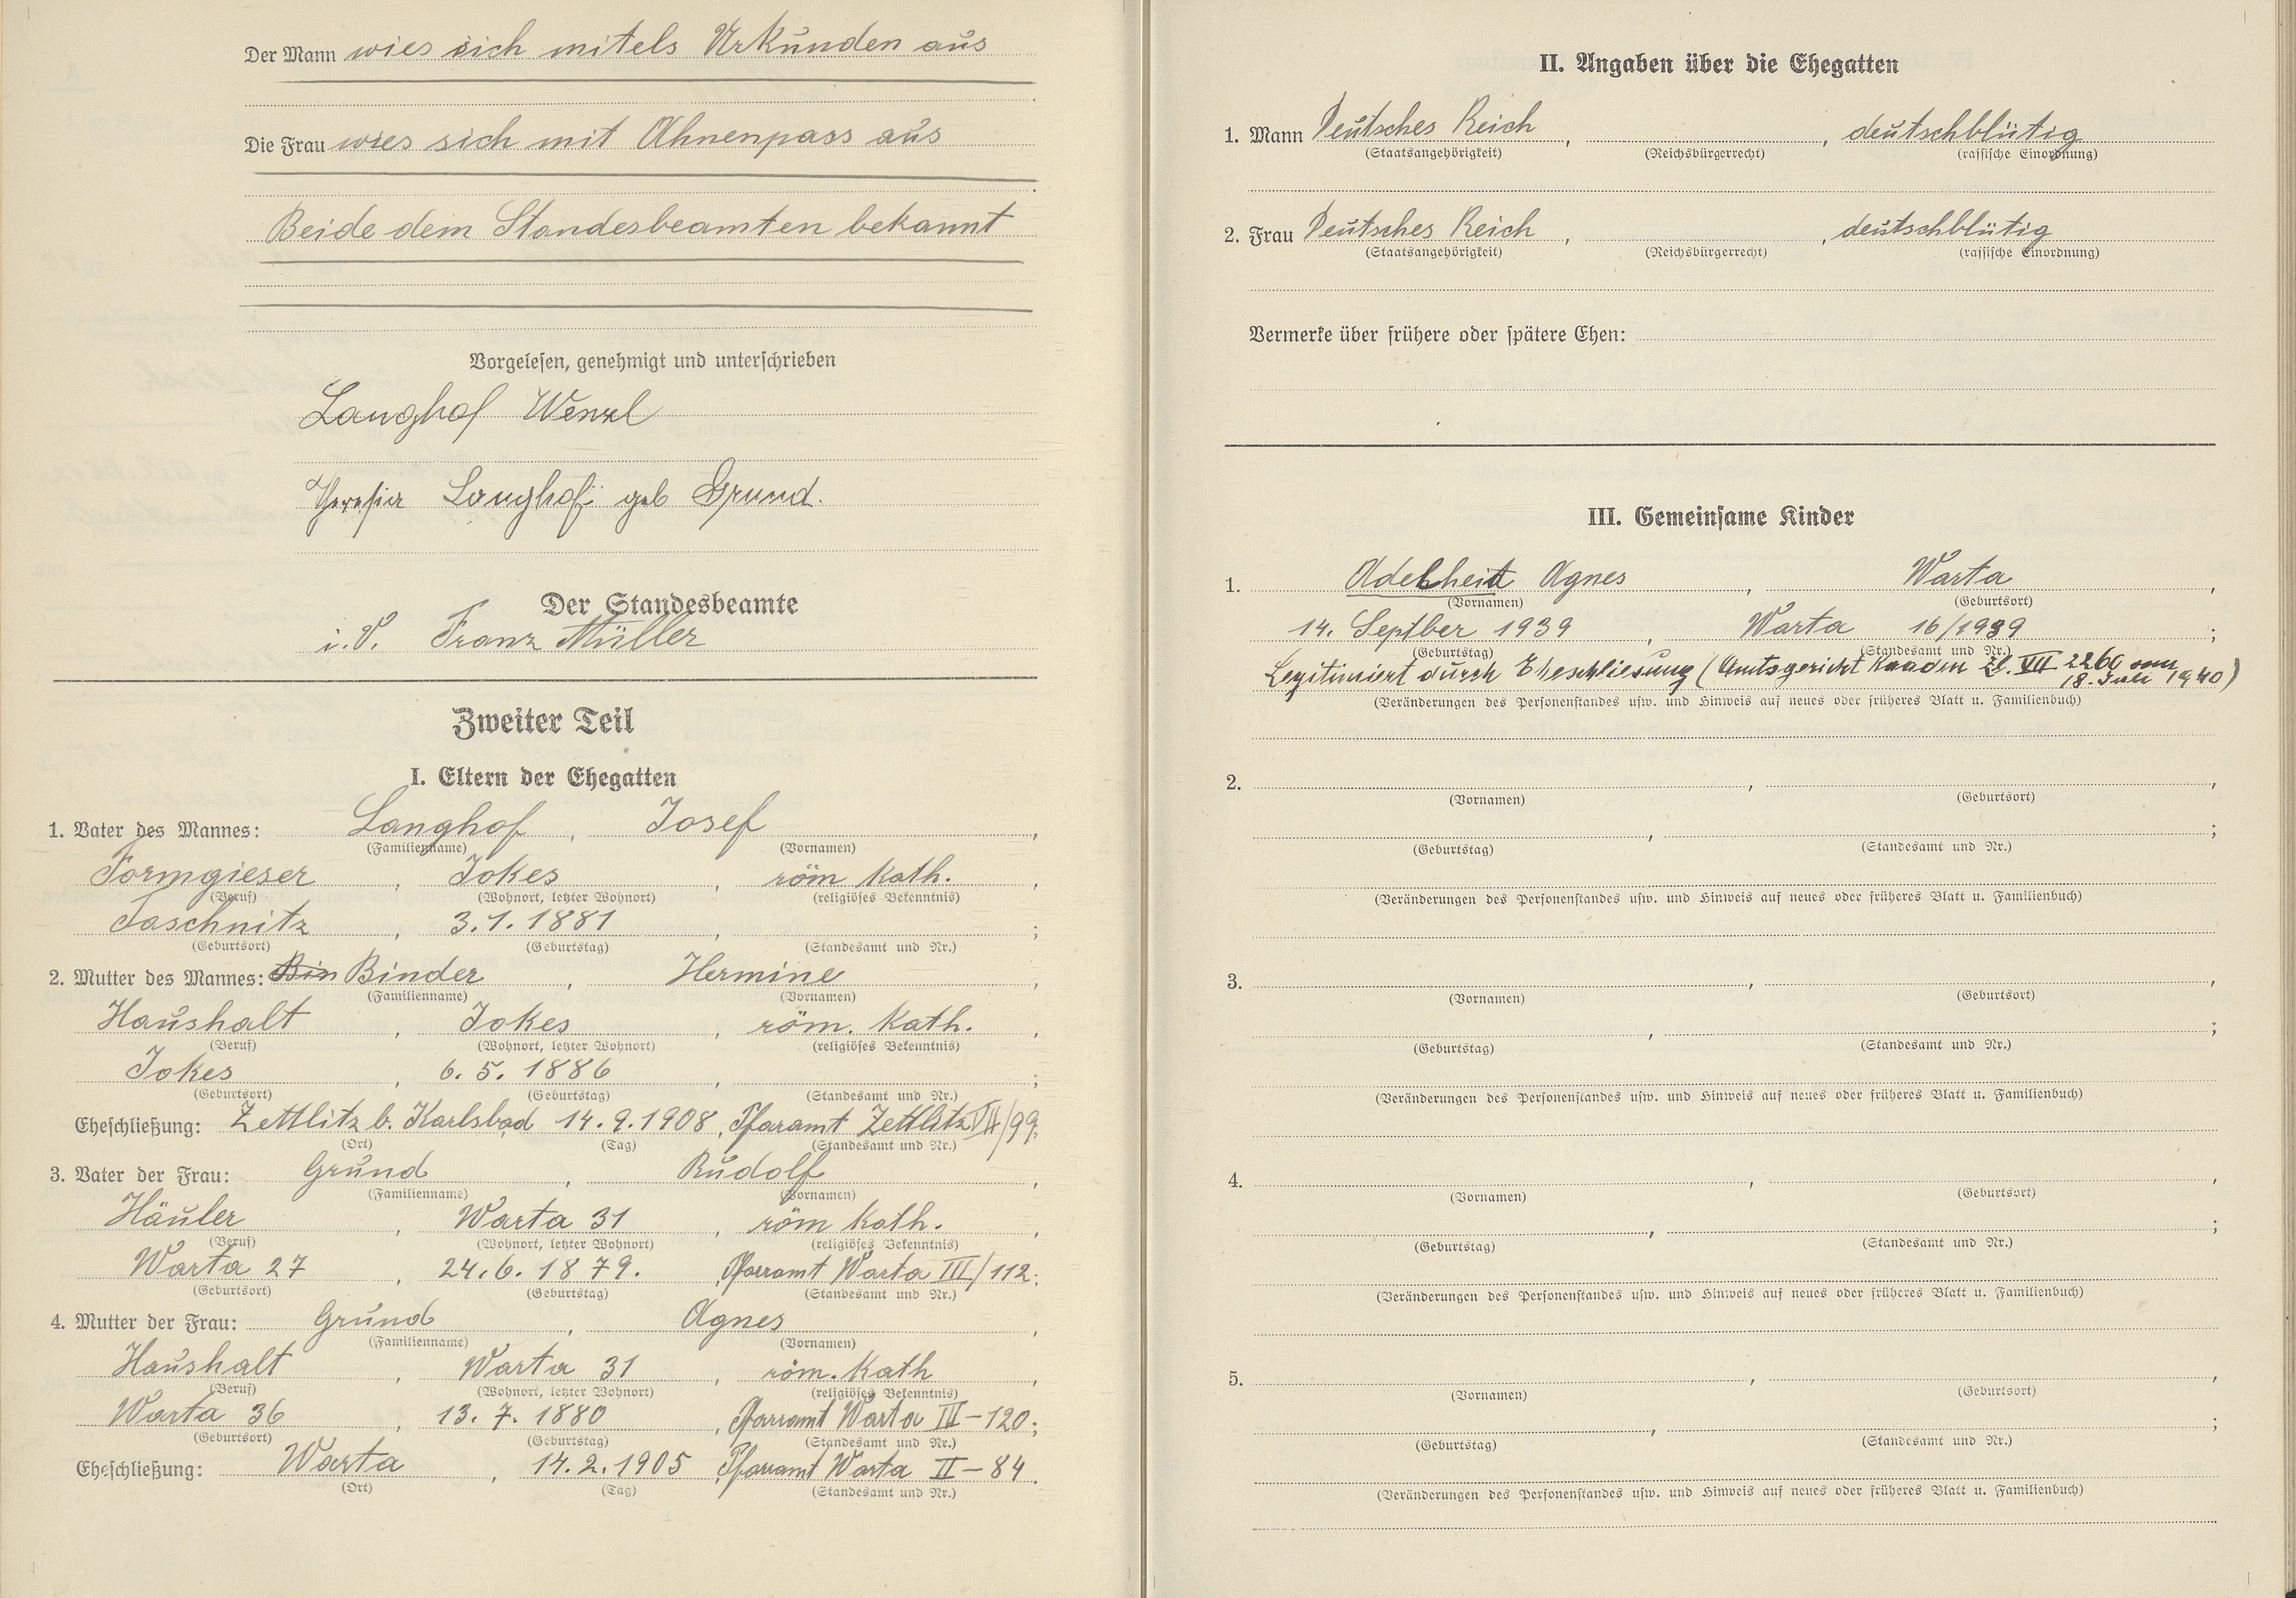 Der Mann wies sich mitels Urkunden aus
Die Frau wies sich mit Ahnenpass aus
Beide dem Standesbeamten bekannt
Vorgelesen, genehmigt und unterschrieben
Langhof Wenzl
Theresia Langhof geb Grund.
Der Standesbeamte
i.V. Franz Müller
Zweiter Teil
I. Eltern der Ehegatten
1. Vater des Mannes: Langhof, Josef,
(Familienname) (Vornamen)
Formgieser, Jokes, röm Kath.,
(Beruf) (Wohnort, letzter Wohnort) (religiöses Bekenntnis)
Taschnitz, 3.1.1881, ;
(Geburtsort) (Geburtstag) (Standesamt und Nr.)
2. Mutter des Mannes: Bin Binder, Hermine,
(Familienname) (Vornamen)
Haushalt, Jokes, röm. Kath.,
(Beruf) (Wohnort, letzter Wohnort) (religiöses Bekenntnis)
Jokes, 6. 5. 1886, ;
(Geburtsort) (Geburtstag) (Standesamt und Nr.)
Eheschließung: Zettlitz b. Karlsbad 14.9.1908, Pfaramt Zettlitz VII/99;
(Ort) (Tag) (Standesamt und Nr.)
3. Vater der Frau: Grund, Rudolf,
(Familienname) (Vornamen)
Häuler, Warta 31, röm Kath.
(Beruf) (Wohnort, letzter Wohnort) (religiöses Bekenntnis)
Warta 27, 24.6.1879., Pfarramt Warta III/112;
(Geburtsort) (Geburtstag) (Standesamt und Nr.)
4. Mutter der Frau: Grund, Agnes,
(Familienname) (Vornamen)
Haushalt, Warta 31, röm. Kath,
(Beruf) (Wohnort, letzter Wohnort) (religiöses Bekenntnis)
Warta 36, 13. 7. 1880, Pfarramt Warta III-120;
(Geburtsort) (Geburtstag) (Standesamt und Nr.)
Eheschließung: Warta, 14.2.1905, Pfarramt Warta II-84.
(Ort) (Tag) (Standesamt und Nr.)
II. Angaben über die Ehegatten
1. Mann Deutsches Reich, , deutschblütig
(Staatsangehörigkeit) (Reichsbürgerrecht) (rassische Einordnung)
2. Frau Deutsches Reich, , deutschblütig
(Staatsangehörigkeit) (Reichsbürgerrecht) (rassische Einordnung)
Vermerke über frühere oder spätere Ehen:
III. Gemeinsame Kinder
1. Adelheit Agnes, Warta,
(Vornamen) (Geburtsort)
14. Septber 1939, Warta 16/1939;
(Geburtstag) (Standesamt und Nr.)
Legitimiert durch Eheschliesung (Amtsgericht Kaaden Zl. VII 2260 vom
18. Juli 1940)
(Veränderungen des Personenstandes usw. und Hinweis auf neues oder früheres Blatt u. Familienbuch)
2. , ,
(Vornamen) (Geburtsort)
, ;
(Geburtstag) (Standesamt und Nr.)
(Veränderungen des Personenstandes usw. und Hinweis auf neues oder früheres Blatt u. Familienbuch)
3. , ,
(Vornamen) (Geburtsort)
, ;
(Geburtstag) (Standesamt und Nr.)
(Veränderungen des Personenstandes usw. und Hinweis auf neues oder früheres Blatt u. Familienbuch)
4. , ,
(Vornamen) (Geburtsort)
, ;
(Geburtstag) (Standesamt und Nr.)
(Veränderungen des Personenstandes usw. und Hinweis auf neues oder früheres Blatt u. Familienbuch)
5. , ,
(Vornamen) (Geburtsort)
, ;
(Geburtstag) (Standesamt und Nr.)
(Veränderungen des Personenstandes usw. und Hinweis auf neues oder früheres Blatt u. Familienbuch)